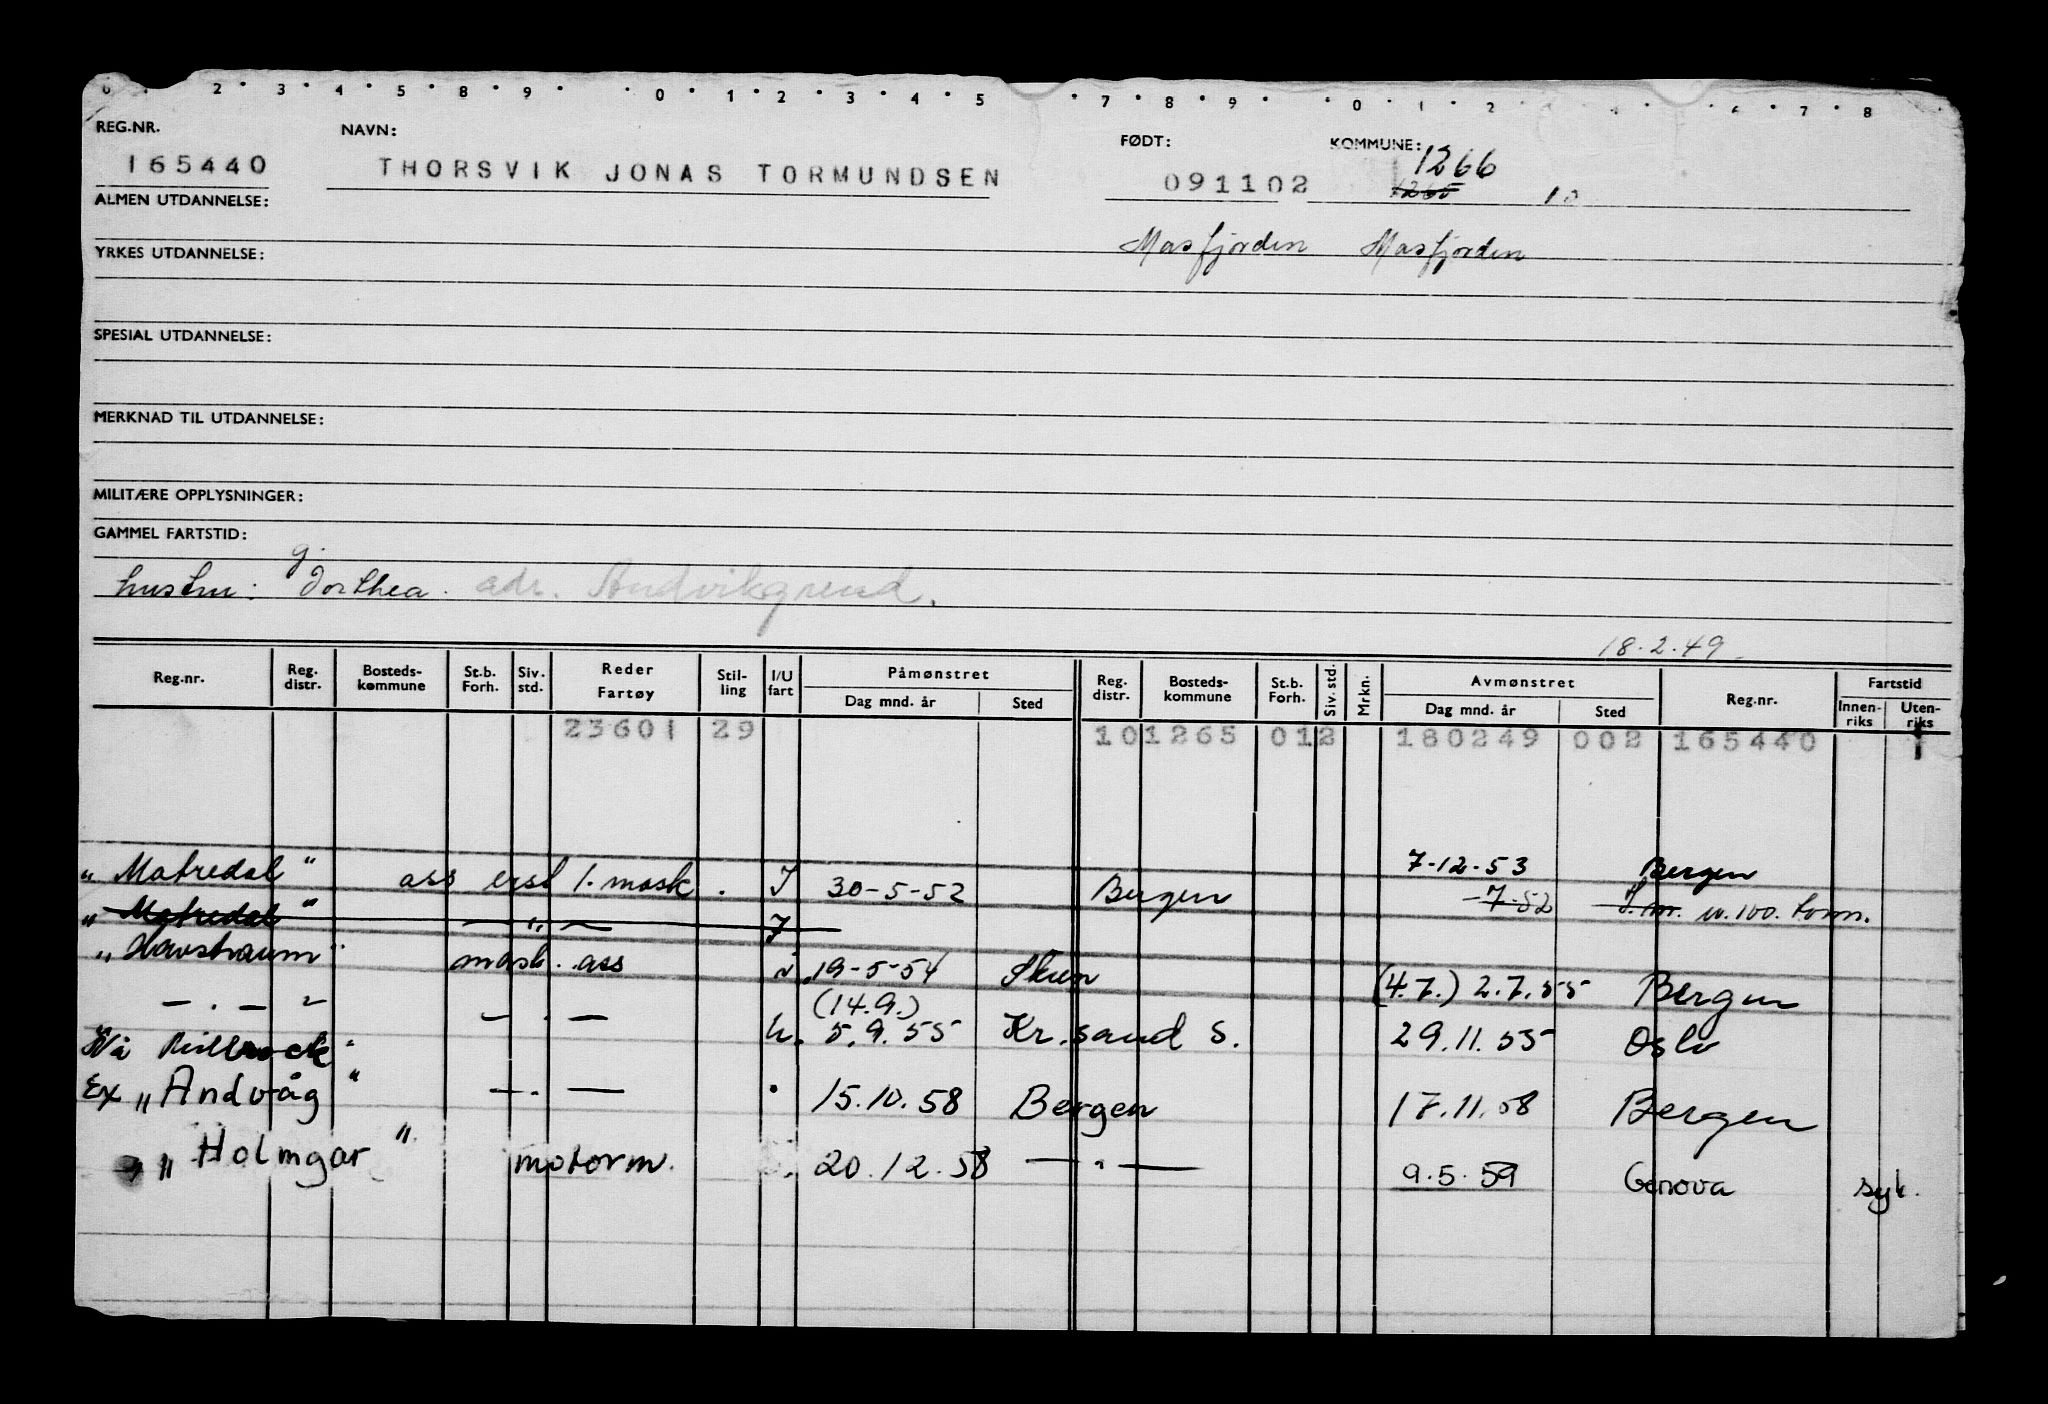 2 · 3 · 4 · 5 · 8 · 9 · · 0 · 1 · 2 · 3 · 4 · 5 · 7 · 8 · 9 · · 0 · 1 · 2 · 6 · 7 · 8
REG.NR. NAVN: FØDT: KOMMUNE:
165440 THORSVIK JONAS TORMUNDSEN 091102 1266
1265 10
ALMEN UTDANNELSE:
Masfjorden Masfjorden
YRKES UTDANNELSE:
SPESIAL UTDANNELSE:
MERKNAD TIL UTDANNELSE:
MILITÆRE OPPLYSNINGER:
GAMMEL FARTSTID:
g.
hustru: Dorthea. adr. Andvikgrend.
18.2.49
Reg.nr. Reg. distr. Bosteds-kommune St.b. Forh. Siv. std. Reder Fartøy Stil-ling I/U fart Påmønstret Dag mnd. år Sted Reg. distr. Bosteds-kommune St.b. Forh. Siv. std. Mrkn. Avmønstret Dag mnd. år Sted Reg.nr. Fartstid Innen-riks Uten-riks
23601 29 101265 012 180249 002 165440 1
7-12-53 Bergen
"Matredal" ass erst 1. mask. I 30-5-52 Bergen -7-52 I.m. u. 100. tonn.
"Matredal" — " — I
"Havstraum" mask. ass i 19-5-54 Skien (4.7.) 2.7.55 Bergen
— . — " — . — (14.9.)
u. 5.9.55 Kr.sand S. 29.11.55 Oslo
Nå
Ex "Andvåg" — . — 15.10.58 Bergen 17.11.58 Bergen
"Holmgar" motorm. 20.12.58 — " — 9.5.59 Genova syk.